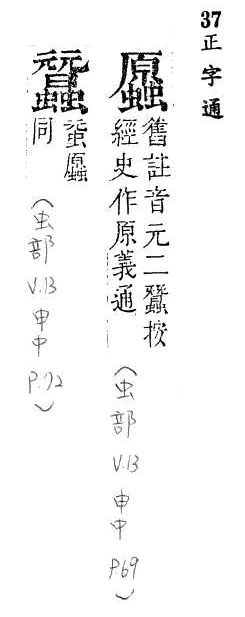 37 正字通
舊註音元二蠶按
經史作原義通
（虫部 V.13 申中 P69）
同
（虫部 V.13 申中 P.72）